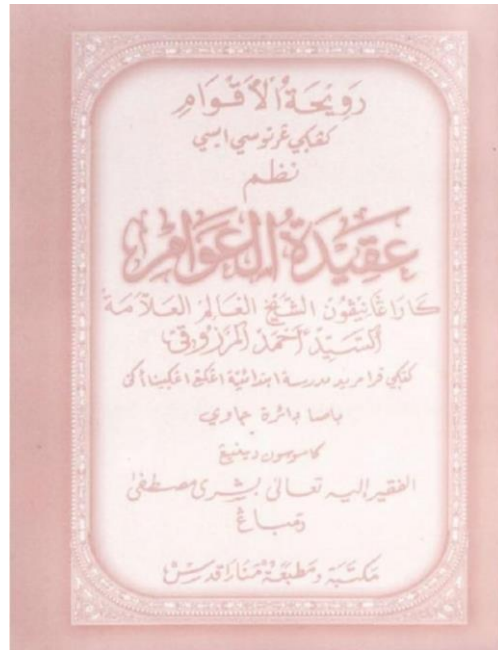 رَوِيحَةُ الْأَقْوَامِ
كڠكي غرتوسي ايسي
نظم
عَقِيْدَةُ الْعَوَامْ
كاراڠانيڤون الشَّيْخُ الْعَالِمُ الْعَلَّامَةُ
السَّيِّدْ أَحْمَدْ الْمَرْزُوقِي
كڠكي ڤرا مريد مدرسة ابتدائية
باسا دائرة جاوي
كاسوسون دينيڠ
الفقير إليه تعالى بشرى مصطفى
رمباڠ
مكتبة ومطبعة منارا قدس